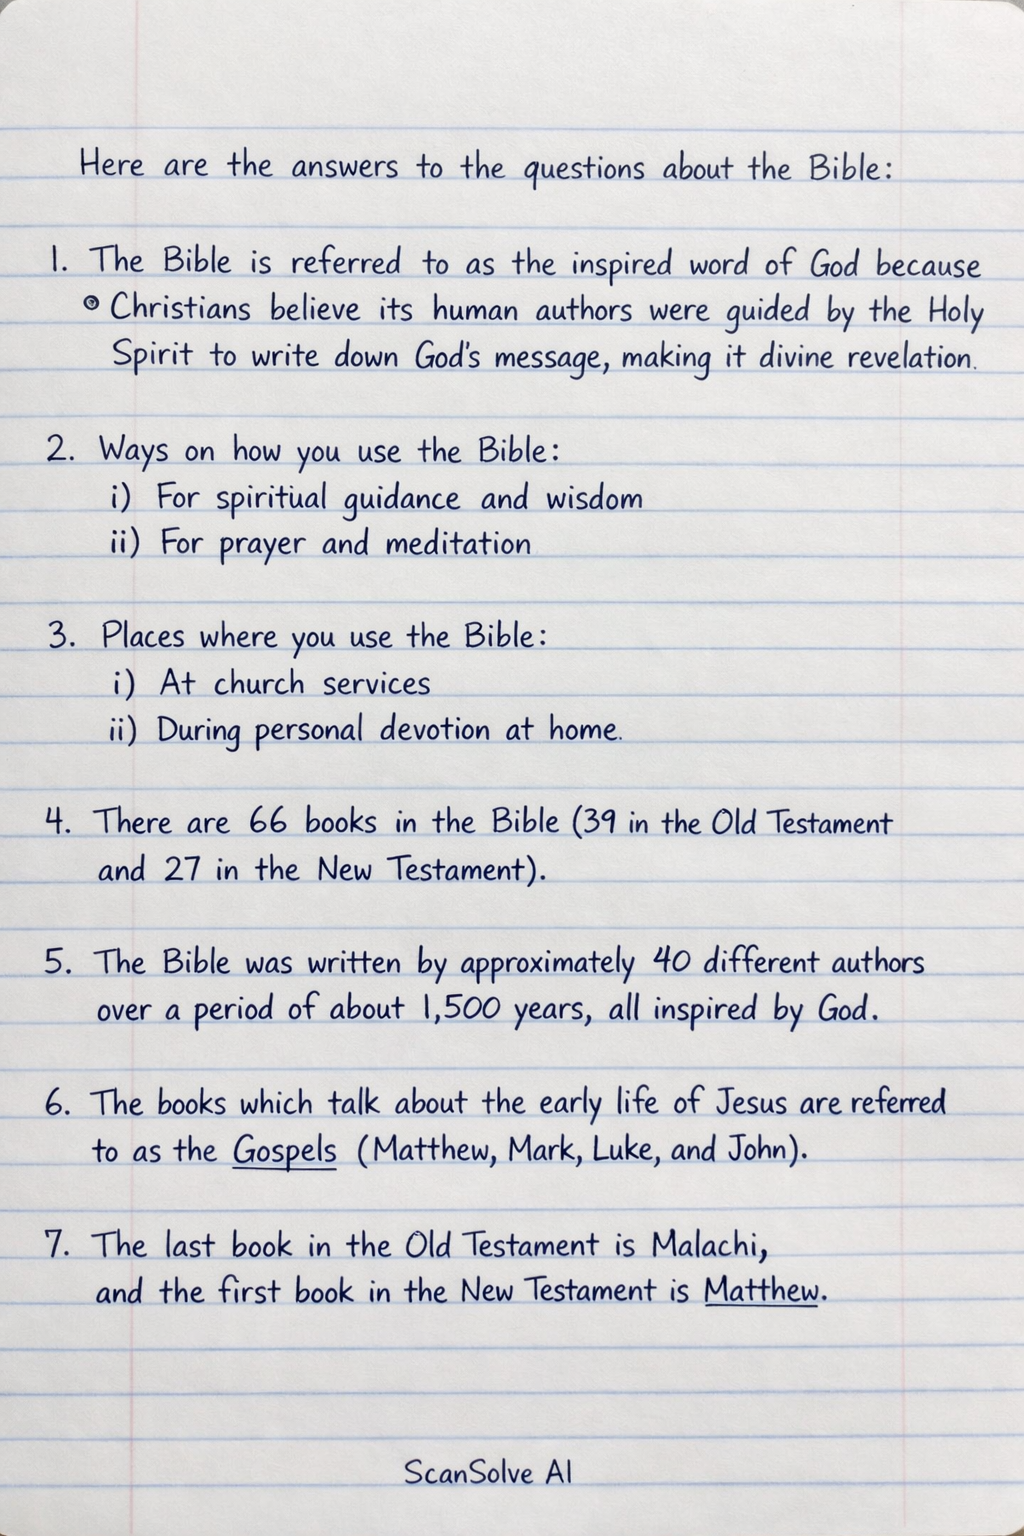 Here are the answers to the questions about the Bible:
1. The Bible is referred to as the inspired word of God because
Christians believe its human authors were guided by the Holy
Spirit to write down God's message, making it divine revelation.
2. Ways on how you use the Bible:
i) For spiritual guidance and wisdom
ii) For prayer and meditation
3. Places where you use the Bible:
i) At church services
ii) During personal devotion at home.
4. There are 66 books in the Bible (39 in the Old Testament
and 27 in the New Testament).
5. The Bible was written by approximately 40 different authors
over a period of about 1,500 years, all inspired by God.
6. The books which talk about the early life of Jesus are referred
to as the Gospels (Matthew, Mark, Luke, and John).
7. The last book in the Old Testament is Malachi,
and the first book in the New Testament is Matthew.
ScanSolve AI